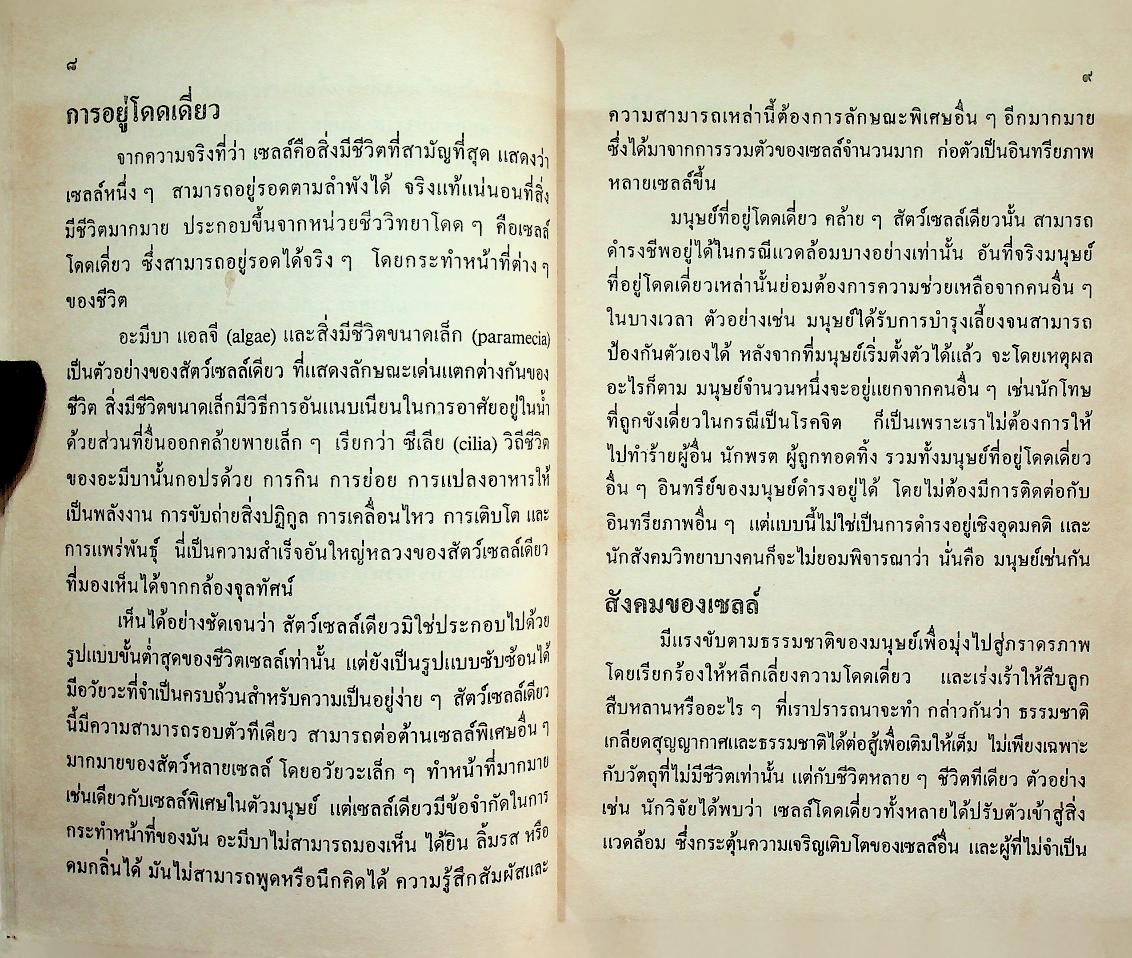 ๘
การอยู่โดดเดี่ยว
จากความจริงที่ว่า เซลล์คือสิ่งมีชีวิตที่สามัญที่สุด แสดงว่า
เซลล์หนึ่ง ๆ สามารถอยู่รอดตามลำพังได้ จริงแท้แน่นอนที่สิ่ง
มีชีวิตมากมาย ประกอบขึ้นจากหน่วยชีววิทยาโดด ๆ คือเซลล์
โดดเดี่ยว ซึ่งสามารถอยู่รอดได้จริง ๆ โดยกระทำหน้าที่ต่าง ๆ
ของชีวิต
อะมีบา แอลจี (algae) และสิ่งมีชีวิตขนาดเล็ก (paramecia)
เป็นตัวอย่างของสัตว์เซลล์เดียว ที่แสดงลักษณะเด่นแตกต่างกันของ
ชีวิต สิ่งมีชีวิตขนาดเล็กมีวิธีการอันแนบเนียนในการอาศัยอยู่ในน้ำ
ด้วยส่วนที่ยื่นออกคล้ายพายเล็ก ๆ เรียกว่า ซีเลีย (cilia) วิถีชีวิต
ของอะมีบานั้นกอปรด้วย การกิน การย่อย การแปลงอาหารให้
เป็นพลังงาน การขับถ่ายสิ่งปฏิกูล การเคลื่อนไหว การเติบโต และ
การแพร่พันธุ์ นี่เป็นความสำเร็จอันใหญ่หลวงของสัตว์เซลล์เดียว
ที่มองเห็นได้จากกล้องจุลทัศน์
เห็นได้อย่างชัดเจนว่า สัตว์เซลล์เดียวมิใช่ประกอบไปด้วย
รูปแบบขั้นต่ำสุดของชีวิตเซลล์เท่านั้น แต่ยังเป็นรูปแบบซับซ้อนได้
มีอวัยวะที่จำเป็นครบถ้วนสำหรับความเป็นอยู่ง่าย ๆ สัตว์เซลล์เดียว
นี้มีความสามารถรอบตัวทีเดียว สามารถต่อต้านเซลล์พิเศษอื่น ๆ
มากมายของสัตว์หลายเซลล์ โดยอวัยวะเล็ก ๆ ทำหน้าที่มากมาย
เช่นเดียวกับเซลล์พิเศษในตัวมนุษย์ แต่เซลล์เดียวมีข้อจำกัดในการ
กระทำหน้าที่ของมัน อะมีบาไม่สามารถมองเห็น ได้ยิน ลิ้มรส หรือ
ดมกลิ่นได้ มันไม่สามารถพูดหรือนึกคิดได้ ความรู้สึกสัมผัสและ
๙
ความสามารถเหล่านี้ต้องการลักษณะพิเศษอื่น ๆ อีกมากมาย
ซึ่งได้มาจากการรวมตัวของเซลล์จำนวนมาก ก่อตัวเป็นอินทรียภาพ
หลายเซลล์ขึ้น
มนุษย์ที่อยู่โดดเดี่ยว คล้าย ๆ สัตว์เซลล์เดียวนั้น สามารถ
ดำรงชีพอยู่ได้ในกรณีแวดล้อมบางอย่างเท่านั้น อันที่จริงมนุษย์
ที่อยู่โดดเดี่ยวเหล่านั้นย่อมต้องการความช่วยเหลือจากคนอื่น ๆ
ในบางเวลา ตัวอย่างเช่น มนุษย์ได้รับการบำรุงเลี้ยงจนสามารถ
ป้องกันตัวเองได้ หลังจากที่มนุษย์เริ่มตั้งตัวได้แล้ว จะโดยเหตุผล
อะไรก็ตาม มนุษย์จำนวนหนึ่งจะอยู่แยกจากคนอื่น ๆ เช่นนักโทษ
ที่ถูกขังเดี่ยวในกรณีเป็นโรคจิต ก็เป็นเพราะเราไม่ต้องการให้
ไปทำร้ายผู้อื่น นักพรต ผู้ถูกทอดทิ้ง รวมทั้งมนุษย์ที่อยู่โดดเดี่ยว
อื่น ๆ อินทรีย์ของมนุษย์ดำรงอยู่ได้ โดยไม่ต้องมีการติดต่อกับ
อินทรียภาพอื่น ๆ แต่แบบนี้ไม่ใช่เป็นการดำรงอยู่เชิงอุดมคติ และ
นักสังคมวิทยาบางคนก็จะไม่ยอมพิจารณาว่า นั่นคือ มนุษย์เช่นกัน
สังคมของเซลล์
มีแรงขับตามธรรมชาติของมนุษย์เพื่อมุ่งไปสู่ภราดรภาพ
โดยเรียกร้องให้หลีกเลี่ยงความโดดเดี่ยว และเร่งเร้าให้สืบลูก
สืบหลานหรืออะไร ๆ ที่เราปรารถนาจะทำ กล่าวกันว่า ธรรมชาติ
เกลียดสุญญากาศและธรรมชาติได้ต่อสู้เพื่อเติมให้เต็ม ไม่เพียงเฉพาะ
กับวัตถุที่ไม่มีชีวิตเท่านั้น แต่กับชีวิตหลาย ๆ ชีวิตทีเดียว ตัวอย่าง
เช่น นักวิจัยได้พบว่า เซลล์โดดเดี่ยวทั้งหลายได้ปรับตัวเข้าสู่สิ่ง
แวดล้อม ซึ่งกระตุ้นความเจริญเติบโตของเซลล์อื่น และผู้ที่ไม่จำเป็น